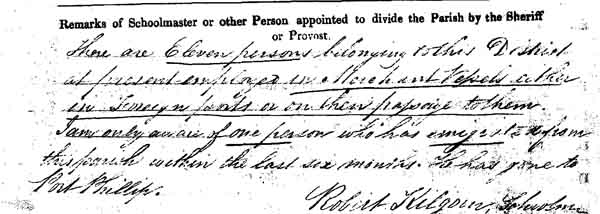 Remarks of Schoolmaster or other Person appointed to divide the Parish by the Sheriff
or Provost.
There are Eleven persons belonging to this District
at present employed in Merchant Vessels either
in Foreign ports or on their passage to them.
I am only aware of one person who has emigrated from
this parish within the last six months. He has gone to
Port Phillip.
Robert Kilgour, Schoolm